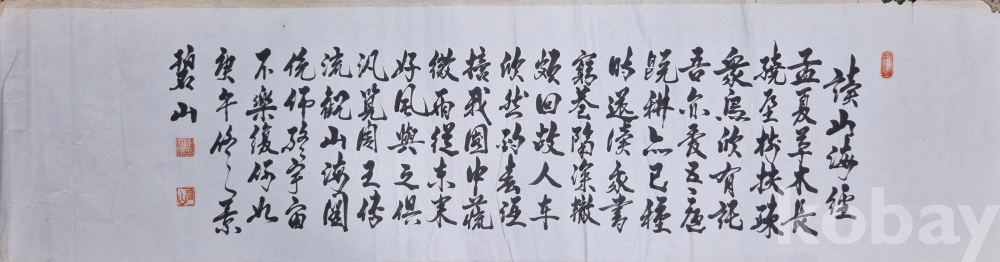 讀山海經
孟夏草木長
繞屋樹扶疎
衆鳥欣有託
吾亦愛吾廬
既耕亦已種
時還讀我書
窮巷隔深轍
頗回故人車
欣然酌春酒
摘我園中蔬
微雨從東來
好風與之俱
汎覽周王傳
流觀山海圖
俛仰終宇宙
不樂復何如
庚午
碧山
kobay